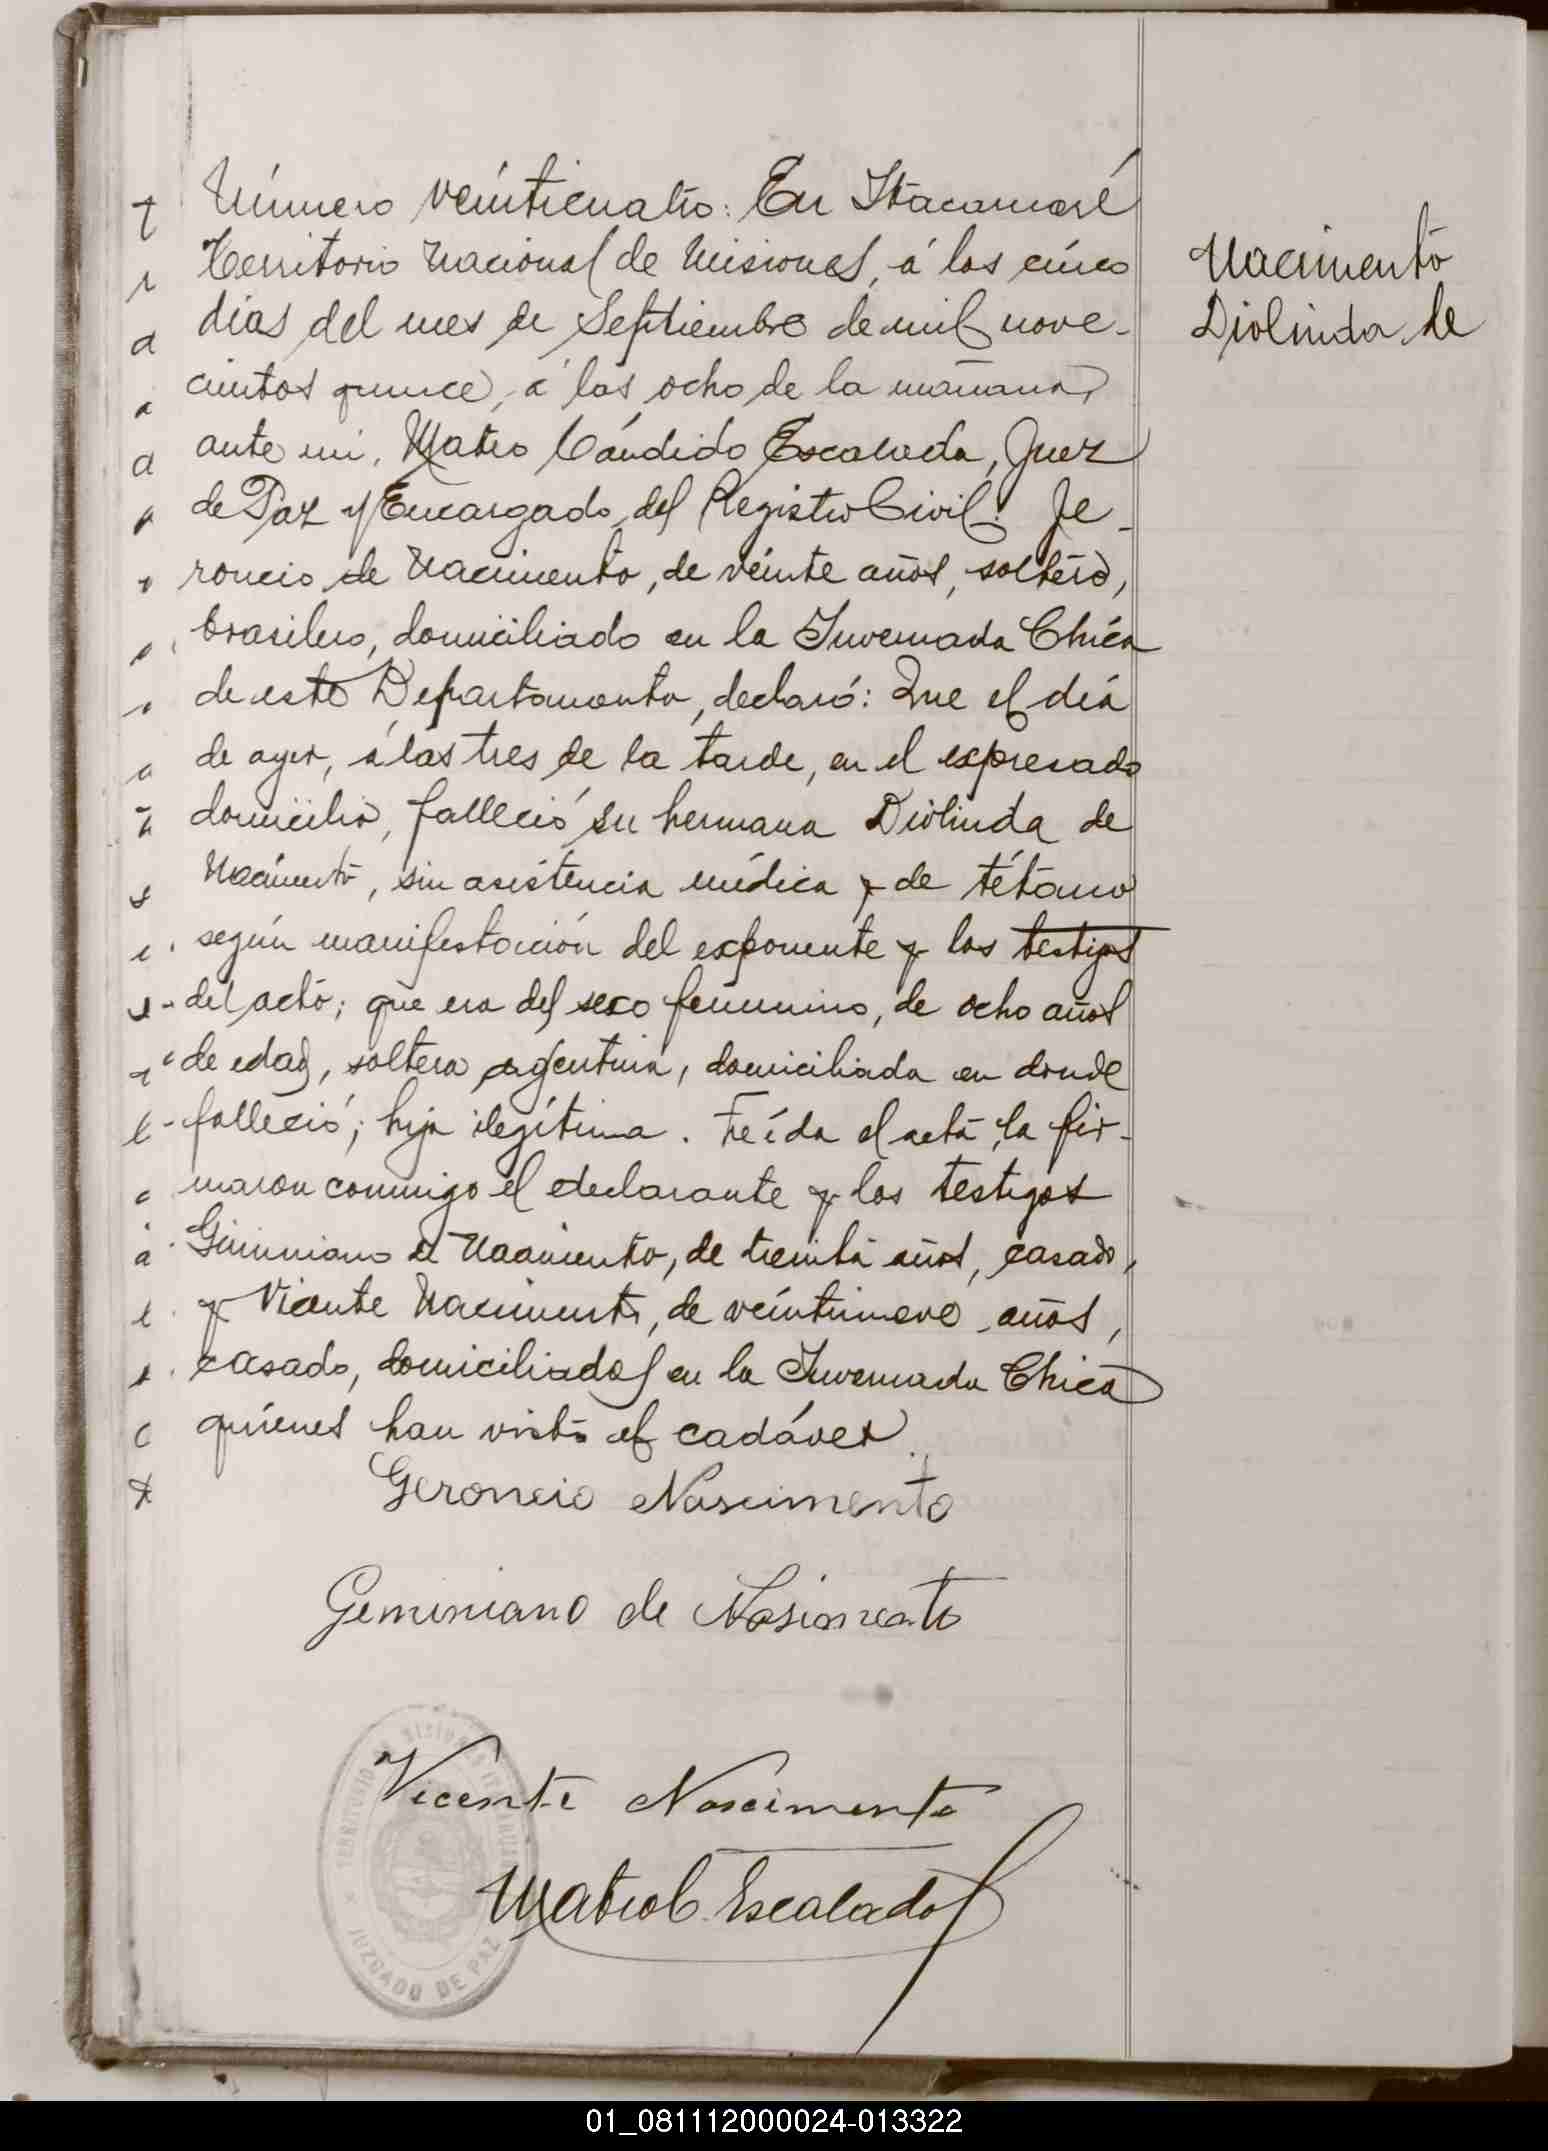 Número veinticuatro: En Itacaruaré
Territorio Nacional de Misiones, á los cinco
días del mes de Septiembre de mil nove-
cientos quince, á las ocho de la mañana,
ante mi, Mateo Cándido Escalada, Juez
de Paz y Encargado del Registro Civil: Je-
roncio de Nacimento, de veinte años, soltero,
brasilero, domiciliado en la Invernada Chica
de este Departamento, declaró: Que el día
de ayer, á las tres de la tarde, en el expresado
domicilio, falleció su hermana Diolinda de
Nacimento, sin asistencia médica y de tétano
según manifestación del exponente y los testigos
del acto; que era del sexo femenino, de ocho años
de edad, soltera argentina, domiciliada en donde
falleció; hija ilegítima. Leída el acta, la fir-
maron conmigo el declarante y los testigos
Giminiano de Nacimento, de treinta años, casado,
y Vicente Nacimento, de veintinueve años,
casado, domiciliados en la Invernada Chica
quienes han visto el cadáver.
Nacimento
Diolinda de
Geroncio Nascimento
Geminiano de Nasimento
Vicente Nascimento
Mateo C. Escalada
TERRITORIO DE MISIONES
JUZGADO DE PAZ
01_081112000024-013322